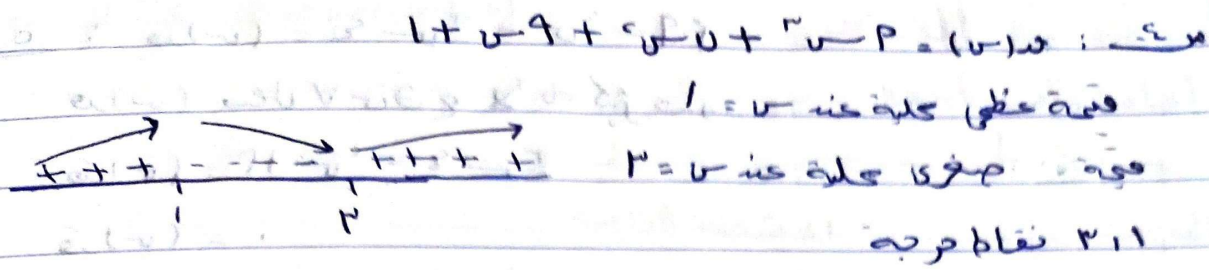 مث٤ : ق(س) = م س٣ + ن س٢ + ٩س + ١
قيمة عظمى محلية عند س = ١
+ + + - - + - + + + +
قيمة صغرى محلية عند س = ٣
١ ٣
٣،١ نقاط حرجة